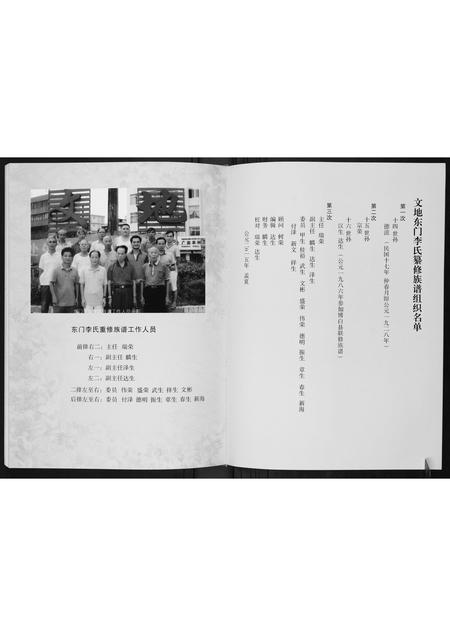 文地
东门李氏重修族谱工作人员
前排右二：主任 瑞荣
右一：副主任 麟生
左一：副主任泽生
左二：副主任达生
二排左至右：委员 伟荣 盛荣 武生 祥生 文彬
后排左至右：委员 付泽 德明 振生 章生 春生 新海
文地东门李氏纂修族谱组织名单
第一次
十四世孙
德谊（民国十七年 仲春月即公元一九二八年）
第二次
十五世孙
宗荣
十六世孙
汉生 达生（公元一九八六年参加博白县联修族谱）
第三次
主任 瑞荣
副主任 麟生 达生 泽生
委员 甲生 桂裕 武生 文彬 盛荣 伟荣 德明 振生 章生 春生 新海
付泽 新文 祥生
顾问 树荣
编辑 达生
财务 麟生
校对 瑞荣 达生
公元二〇一五年 孟夏